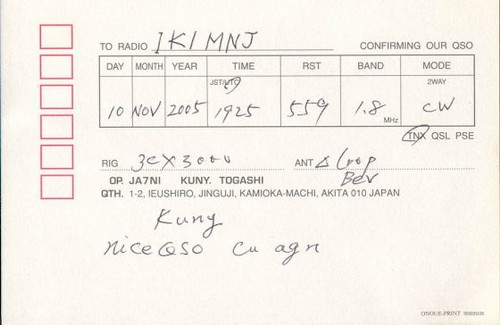 TO RADIO IK1MNJ CONFIRMING OUR QSO
DAY MONTH YEAR TIME RST BAND MODE
JST/UTC 2WAY
10 NOV 2005 1925 559 1.8 MHz CW
TNX QSL PSE
RIG 3CX3000 ANT Δ Loop
Bev
OP. JA7NI KUNY. TOGASHI
QTH. 1-2, IEUSHIRO, JINGUJI, KAMIOKA-MACHI, AKITA 010 JAPAN
Kuny
Nice QSO cu agn
ONOUE-PRINT